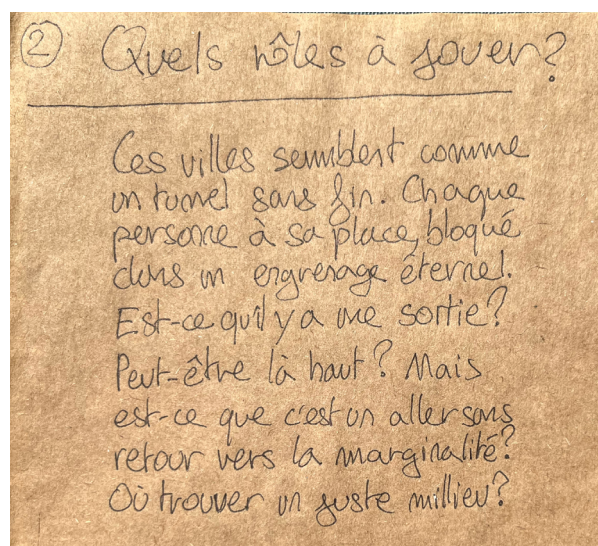 ② Quels rôles à jouer?
Ces villes semblent comme
un tunnel sans fin. Chaque
personne à sa place, bloqué
dans un engrenage éternel.
Est-ce qu'il y a une sortie?
Peut-être là haut? Mais
est-ce que c'est un aller sans
retour vers la marginalité?
Où trouver un juste millieu?